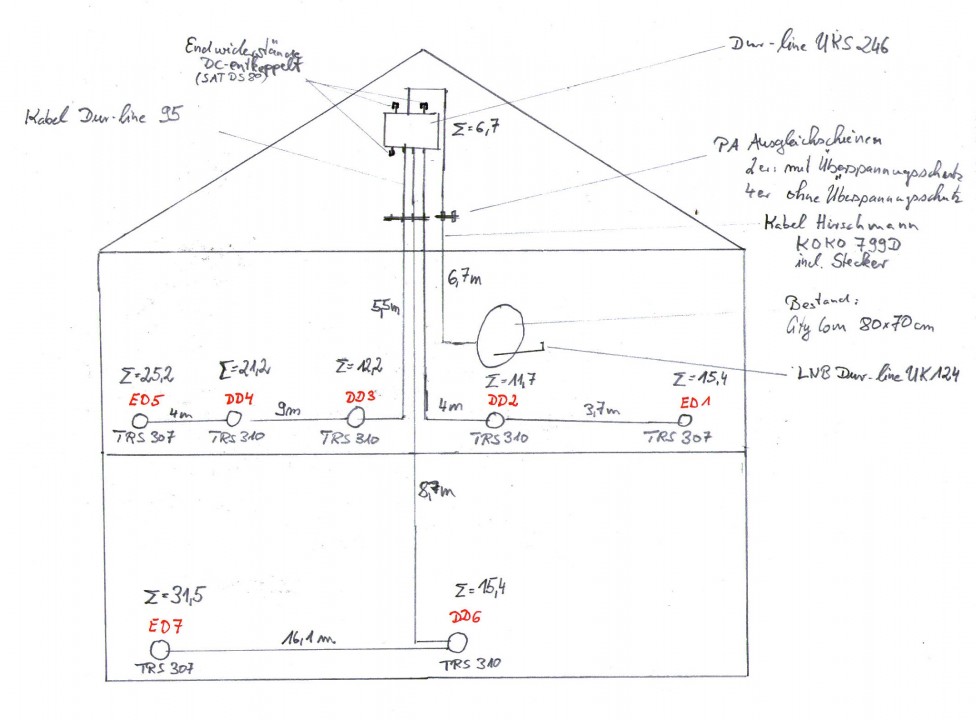 Endwiderstände
DC-entkoppelt
(SAT DS 80)
Dur-line UKS 246
Kabel Dur-line 95
Σ=6,7
PA Ausgleichschienen
2er: mit Überspannungsschutz
4er ohne Überspannungsschutz
Kabel Hirschmann
KOKO 799D
incl. Stecker
6,7m
5,5m
Bestand:
City Com 80x70cm
LNB Dur-line UK124
Σ=25,2
ED5
TRS 307
4m
Σ=21,2
DD4
TRS 310
9m
Σ=12,2
DD3
TRS 310
4m
Σ=11,7
DD2
TRS310
3,7m
Σ=15,4
ED1
TRS 307
8,7m
Σ=31,5
ED7
TRS 307
16,1m
Σ=15,4
DD6
TRS 310